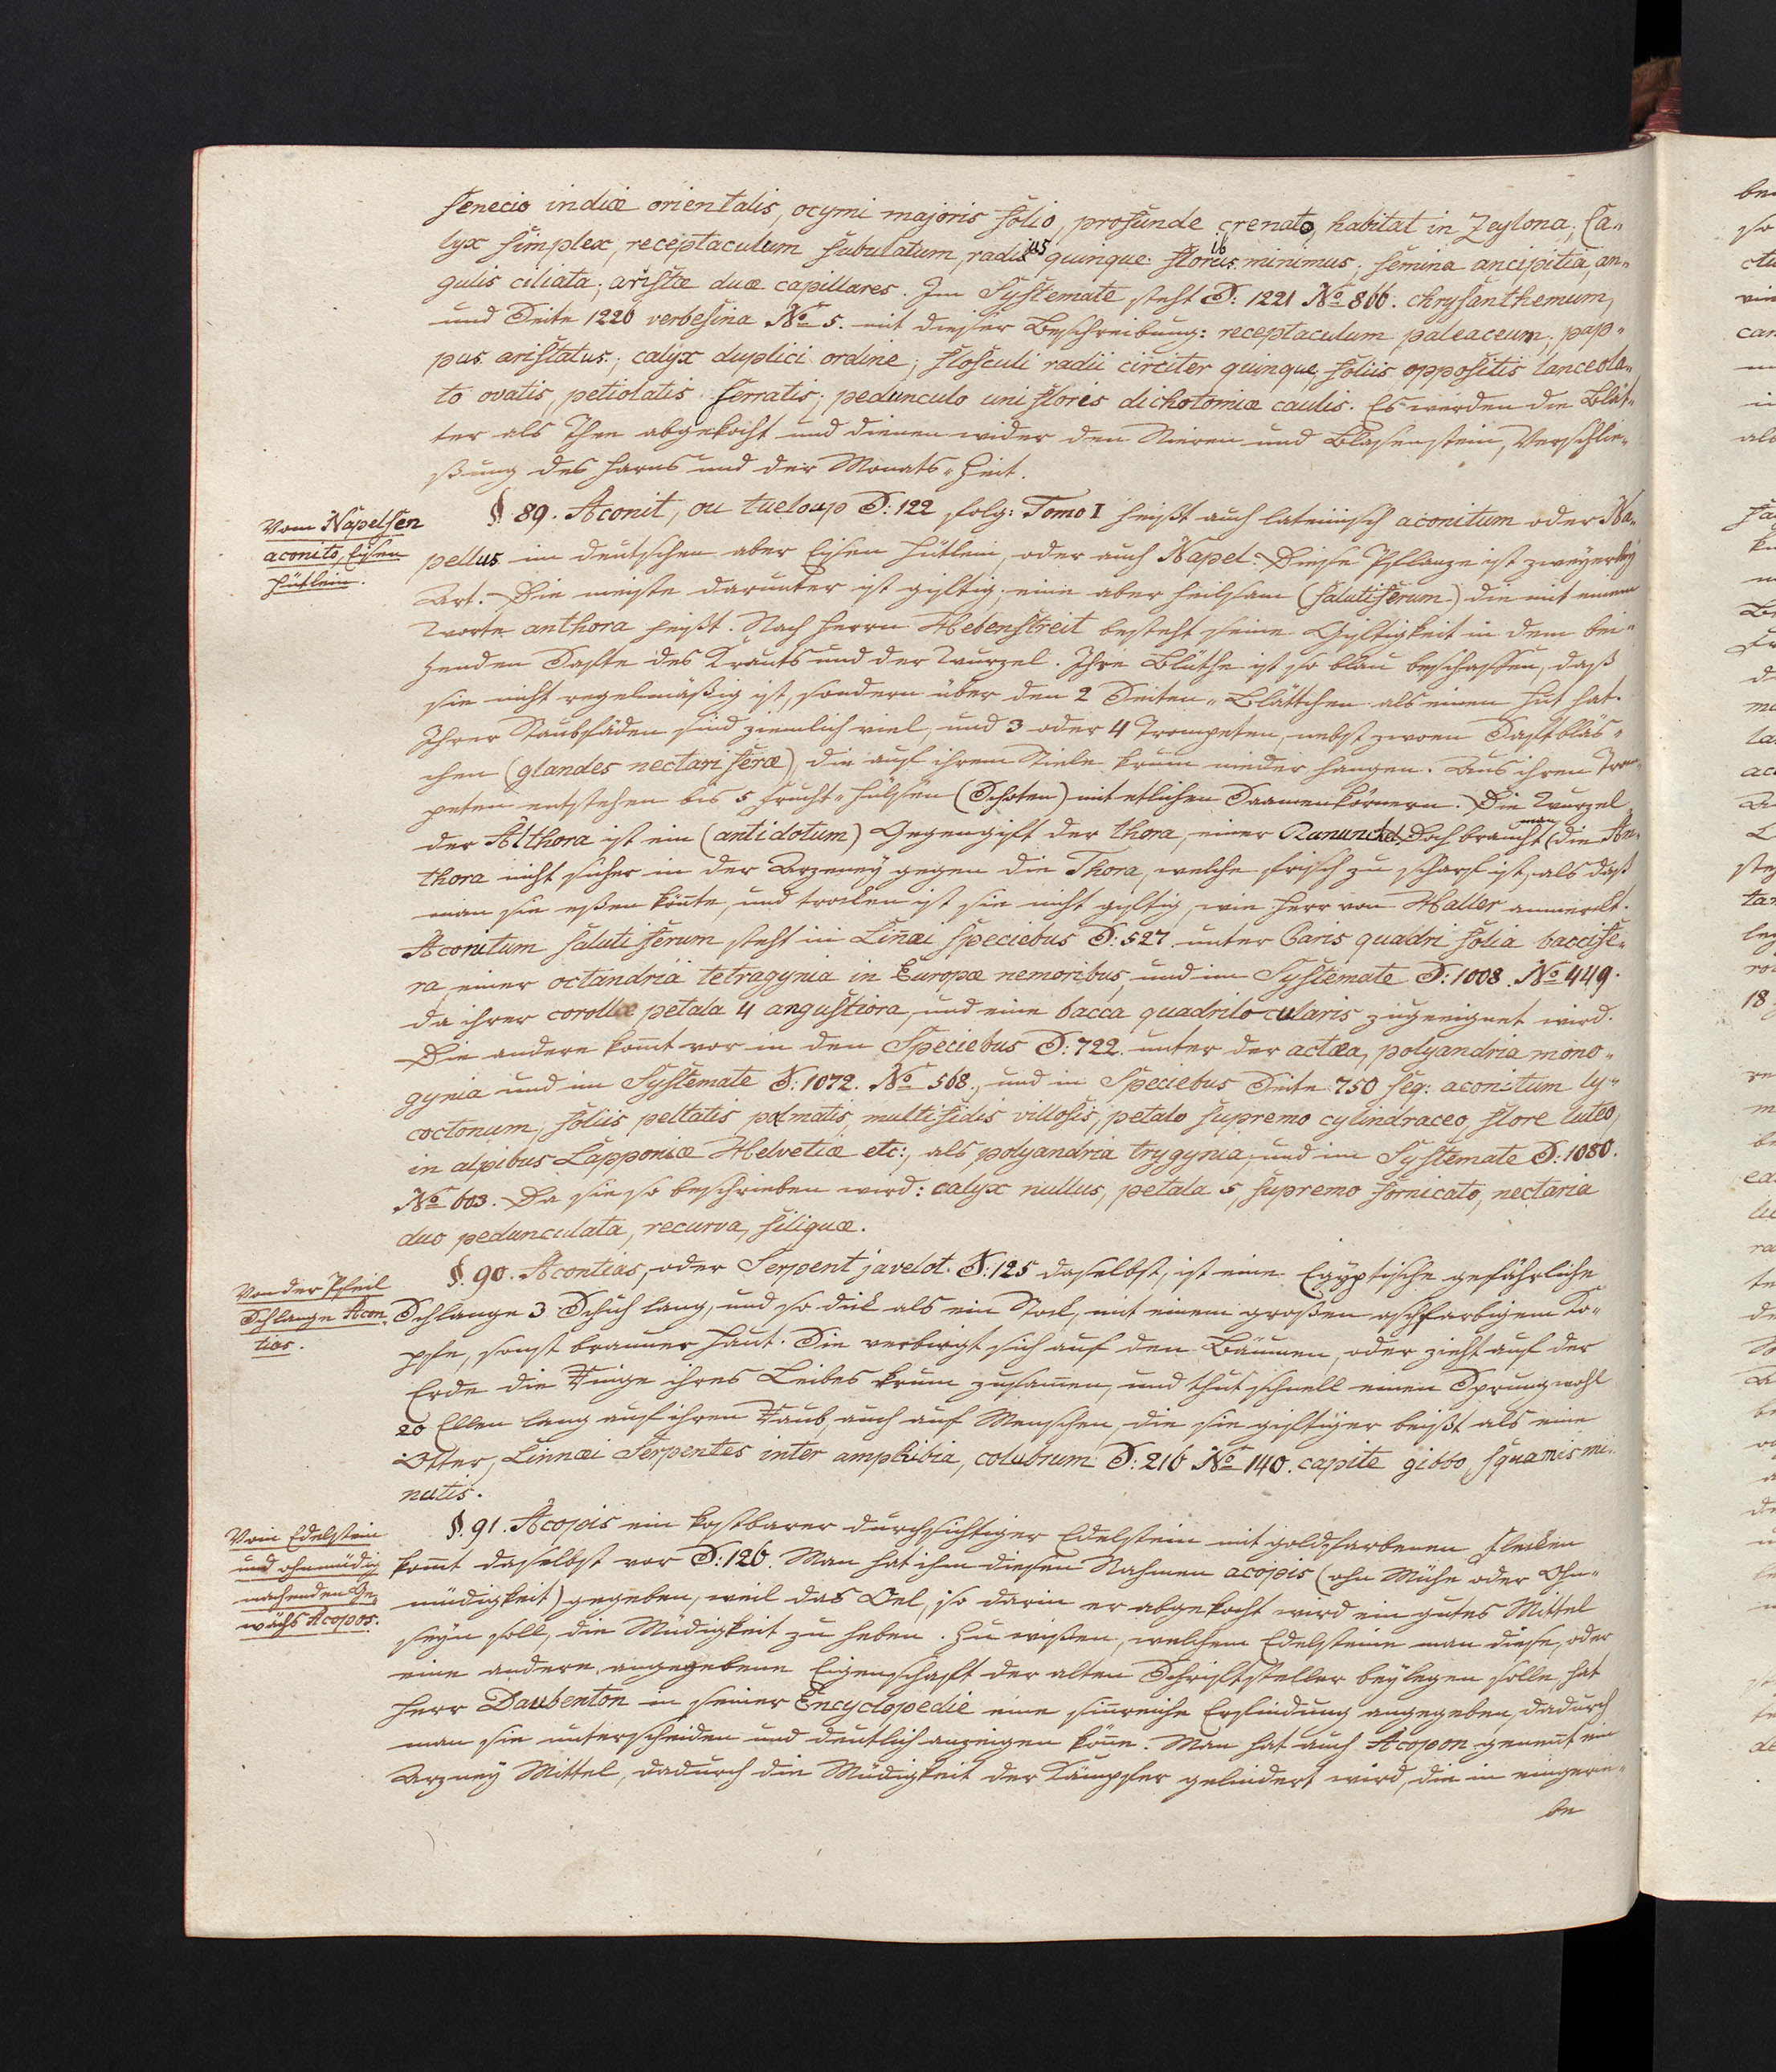 senecio indiæ orientalis, ocymi majoris folio, profunde crenato, habitat in Zeylona; Ca„
lyx simplex, receptaculum subulatum, radius quinque florus minimus; semina ancipitia, an„
gulis ciliata; aristæ duæ capillares. Im Systemate steht S: 1221 No 866. chrysanthemum,
und Seite 1226 verbesina No 5. mit dieser Beschreibung: receptaculum paleaceum; pap„
pus aristatus; calyx duplici ordine; flosculi radii circiter quinque, foliis oppositis lanceola„
to ovatis, petiolatis serratis; pedunculo uniflores dichotomiæ caulis. Es werden die Blät„
ter als Thee abgekocht und dienen wider den Nieren und Blasenstein, Verschlie„
ßung des Harns und der Monats„Zeit.
Vom Napelsen
aconito, Eisen
Hütlein.
§ 89. Aconit, ou tueloup S: 122 folg: Tomo I heißt auch lateinisch aconitum oder Na„
pellus im deutschen aber Eisen Hütlein, oder auch Napel. Diese Pflanze ist zweyerley
Art. Die meiste darunter ist giftig; eine aber heilsam (salutiferum) die mit einem
Worte anthora heißt. Nach Herrn Hebenstreit besteht seine Giftigkeit in dem bei„
zenden Safte des Krauts und der Wurzel. Ihre Blüthe ist so blau beschaffen, daß
sie nicht regelmäßig ist, sondern über den 2 Seiten„Blättchen als einen Hut hat.
Ihrer Staubfäden sind ziemlich viel, und 3 oder 4 Trompeten, nebst zwoen Saftbläs„
chen (glandes nectariferæ) die auf ihrem Stiele krum nieder hangen. Aus ihren Trom„
peten entstehen bis 5 Frucht„Hülsen (Schoten) mit etlichen Saamenkörnern. Die Wurzel
der Althora ist ein (antidotum) Gegengift der thora, einer Ranunckel. Doch braucht man (die An„
thora nicht sicher in der Arzeney gegen die Thora, welche frisch zu scharf ist, als daß
man sie eßen könte, und trocken ist sie nicht giftig, wie Herr von Haller anmerckt.
Aconitum salutiferum steht in Linæi speciebus S: 527. unter Paris quadri folia baccife„
ra, einer octandria tetragynia in Europæ nemoribus, und im Systemate S: 1008. No 449.
da ihrer corollæ petala 4 angustiora, und eine bacca quadrilocularis zugeeignet wird.
Die andere komt vor in den Speciebus S: 722. unter der actæa, polyandria mono„
gynia und im Systemate S: 1072. No 568., und in Speciebus Seite 750 seq: aconitum ly„
coctonum, foliis peltatis palmatis, multifidis villosis, petalo supremo cylindraceo, flore luteo,
in alpibus Lapponiæ Helvetiæ etc:, als polyandria trygynia, und im Systemate S: 1080.
No 603. Da sie so beschrieben wird: calyx nullus, petala 5, supremo fornicato, nectaria
duo pedunculata, recurva, siliquæ.
Von der Pfeil
Schlange Acon„
tias.
§. 90. Acontias, oder Serpent javelot. S: 125 daselbst, ist eine Egyptische gefährliche
Schlange 3 Schuh lang, und so dick als ein Stock, mit einem großen aschfarbigem Ko„
pfe, sonst brauner Haut. Sie verbirgt sich auf den Bäumen, oder zieht auf der
Erde die Ringe ihres Leibes krum zusamen, und thut schnell einen Sprung wohl
20 Ellen lang auf ihren Raub, auch auf Menschen, die sie giftiger beißt als eine
Otter, Linnæi Serpentes inter amphibia, colubrum S: 216 No 140. capite gibbo, squamis mi„
nutis.
Vom Edelstein
und ohnmüdig
machenden Ge„
wächs Acopos.
§. 91. Acopis ein kostbarer durchsichtiger Edelstein mit goldfarbenen Flecken
komt daselbst vor S: 126. Man hat ihm diesen Nahmen acopis (ohn Mühe oder Ohn„
müdigkeit) gegeben, weil das Oel, so darin er abgekocht wird ein gutes Mittel
seyn soll, die Müdigkeit zu heben. Zu wißen, welchem Edelsteine man diese, oder
eine andere angegebene Eigenschaft der alten Schriftsteller beylegen solle, hat
Herr Daubenton in seiner Encyclopedie eine sinreiche Erfindung angegeben, dadurch
man sie unterscheiden und deutlich anzeigen köne. Man hat auch Acopon genent ein
Arzney Mittel, dadurch die Müdigkeit der Kämpfer gelindert wird, die in eingerie„
be